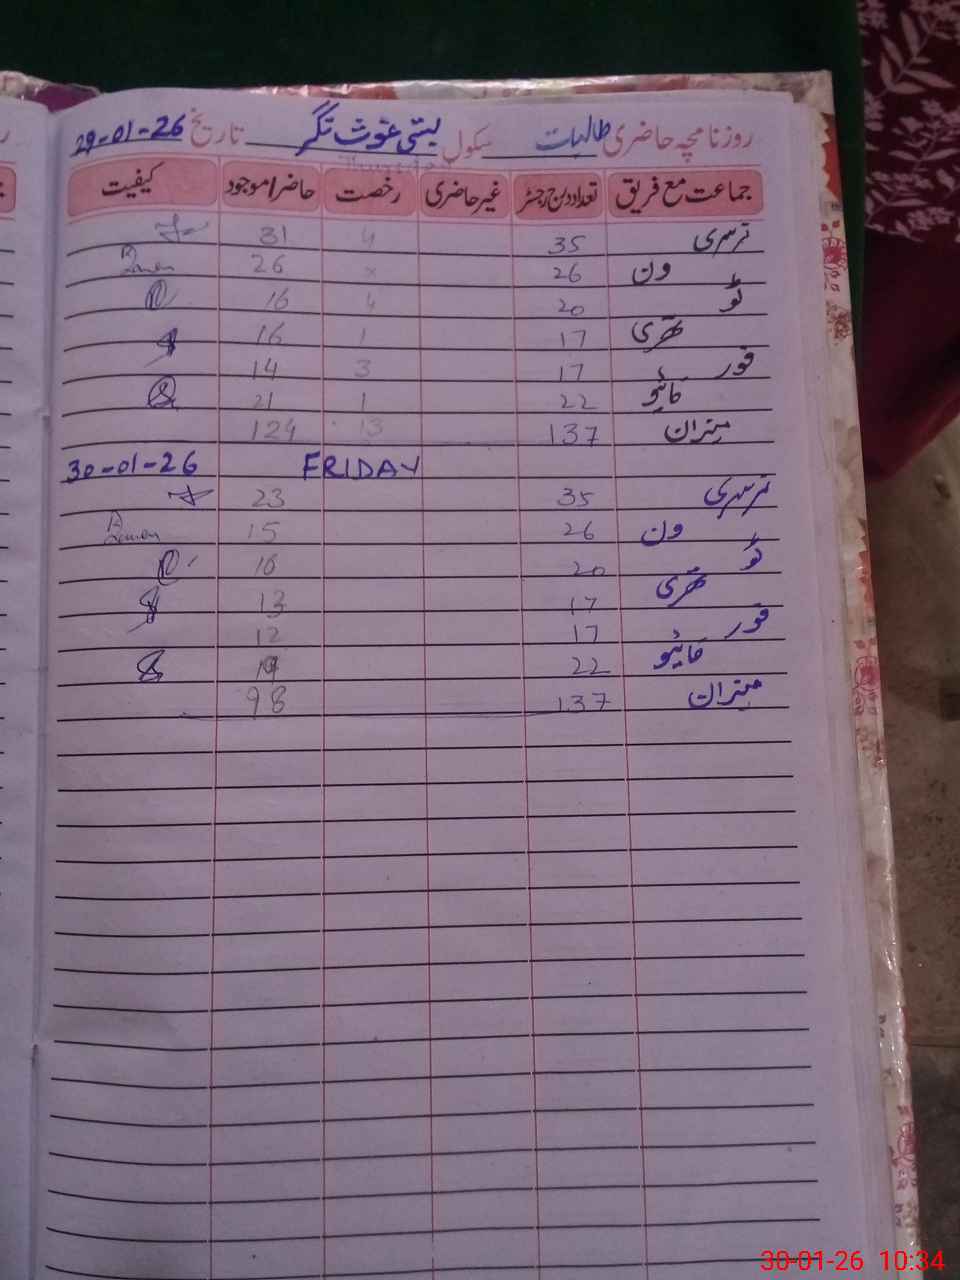 روزنامچہ حاضری طالبات سکول بستی غوث نگر تاریخ 29-01-26
جماعت مع فریق تعداد درج رجسٹر غیر حاضری رخصت حاضر/موجود کیفیت
نرسری 35 4 31
ون 26 × 26
ٹو 20 4 16
تھری 17 1 16
فور 17 3 14
فائیو 22 1 21
میزان 137 13 124
30-01-26 FRIDAY
نرسری 35 23
ون 26 15
ٹو 20 16
تھری 17 13
فور 17 12
فائیو 22
میزان 137 98
30-01-26 10:34